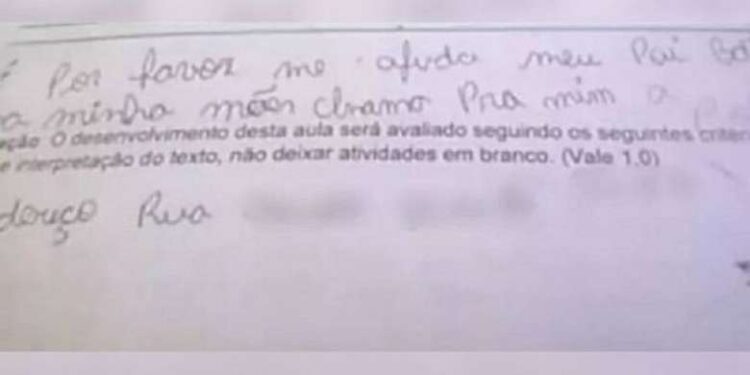 Por favor me ajuda meu Pai
a minha mãer chamo Pra mim a
ção O desenvolvimento desta aula será avaliado seguindo os seguintes criter
e interpretação do texto, não deixar atividades em branco. (Vale 1.0)
Rua